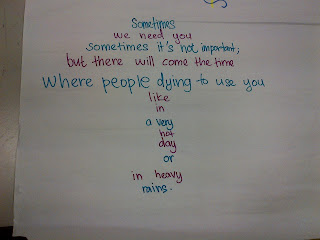 Sometimes
we need you
sometimes it's not important;
but there will come the time
Where people dying to use you
like
in
a very
hot
day
or
in heavy
rains.